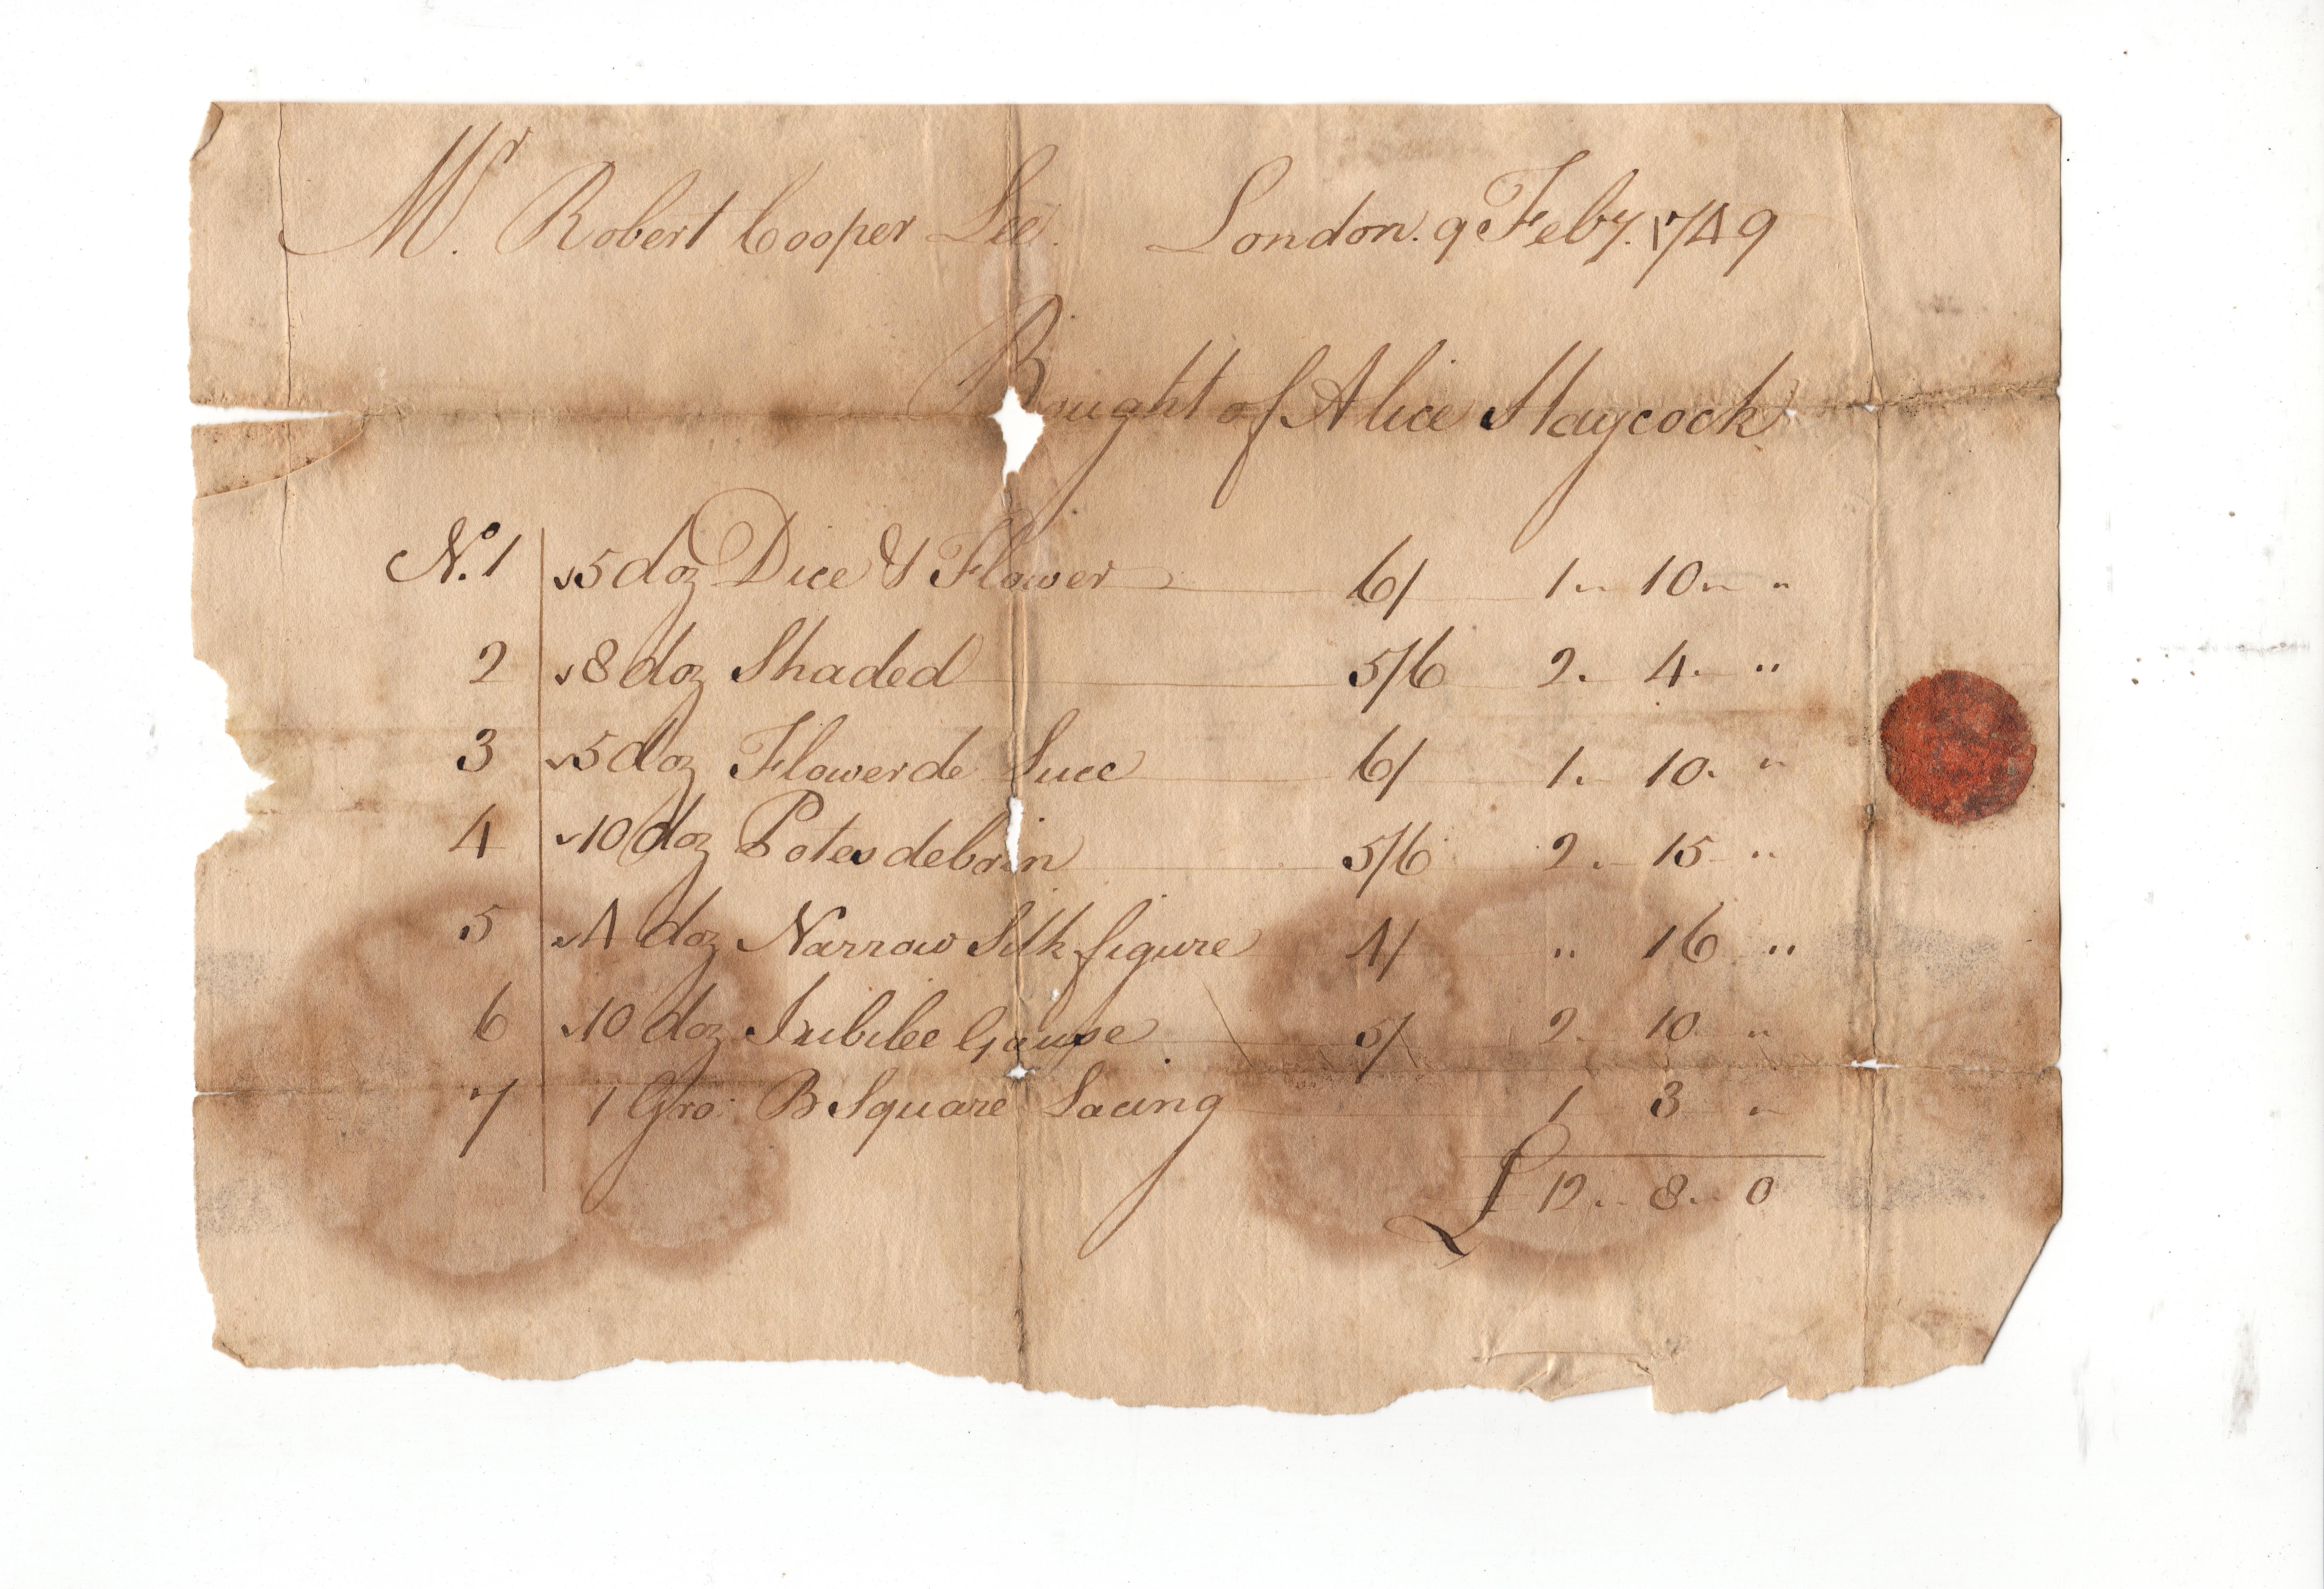 Mr. Robert Cooper Lee. London. 9 Feby. 1749
Bought of Alice Haycock
No. 1 5 doz Dice & Flower 6/ 1 " 10 " "
2 8 doz Shaded 5/6 2 . 4 . "
3 5 doz Flower de Luce 6/ 1 . 10 . "
4 10 doz Potes debrin 5/6 2 . 15 "
5 4 doz Narrow Silk figure 4/ " 16 "
6 10 doz Jubilee Gause 5/ 2 . 10 "
7 1 Gro: B Square Lacing 1 3 "
£ 12 . 8 . 0